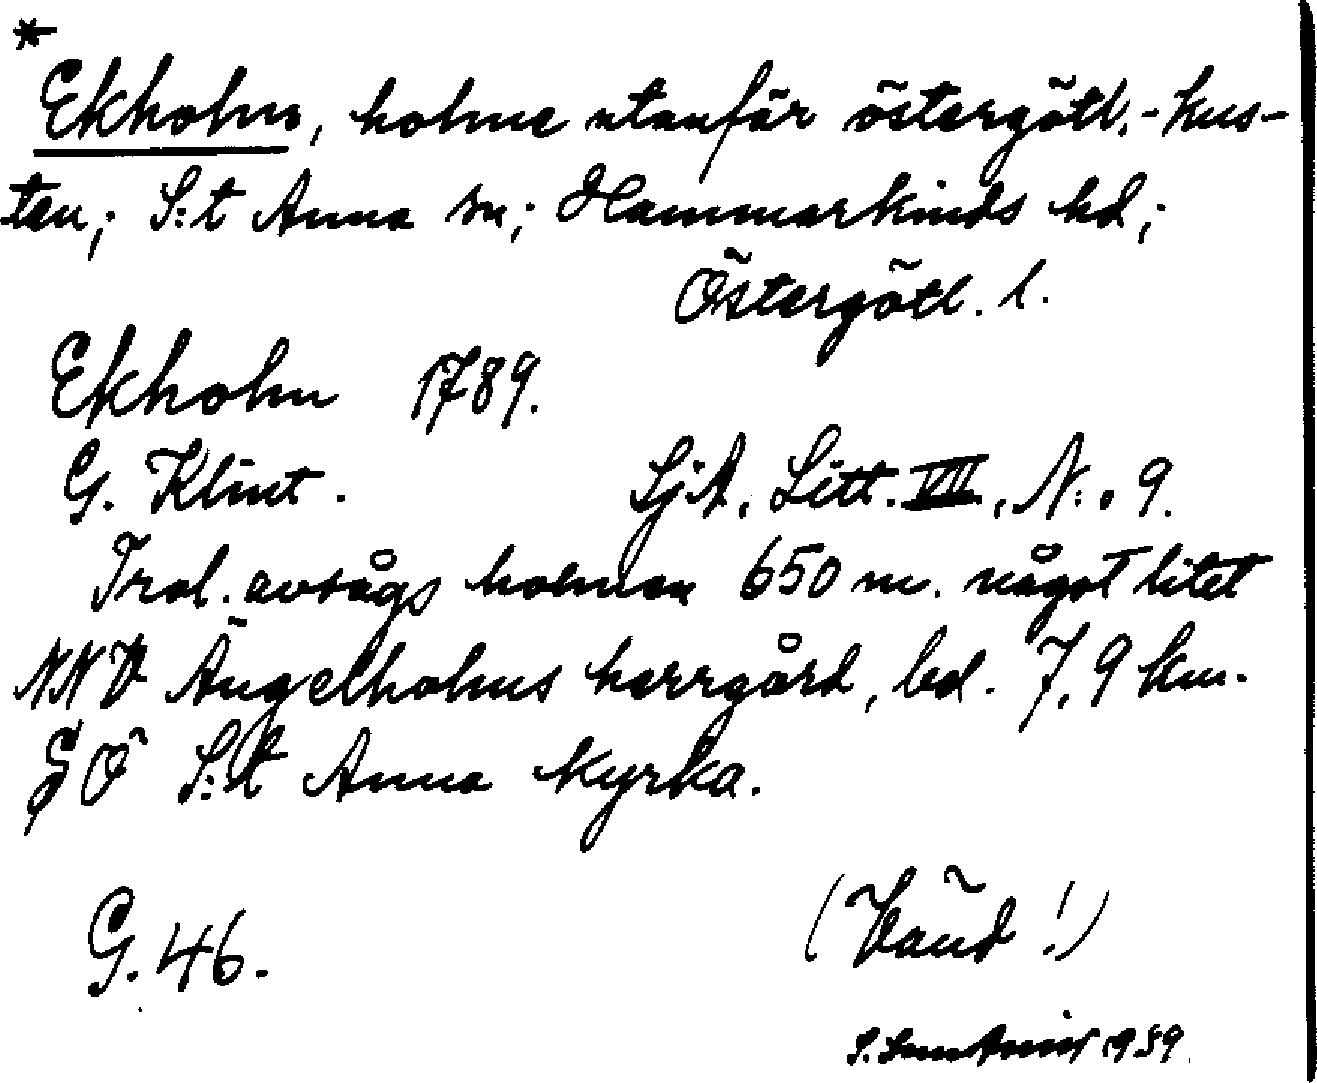 *
Ekholm, holme utanför östergötl.-kus-
ten; S:t Anna sn; Hammarkinds hd;
Östergötl. l.
Ekholm 1789.
G. Klint. SjA. Litt. VII, N:o 9.
Trol. avsågs holmen 650 m. något litet
NNV Ängelholms herrgård, bel. 7,9 km.
SO S:t Anna kyrka.
G. 46.
(Vänd!)
1959